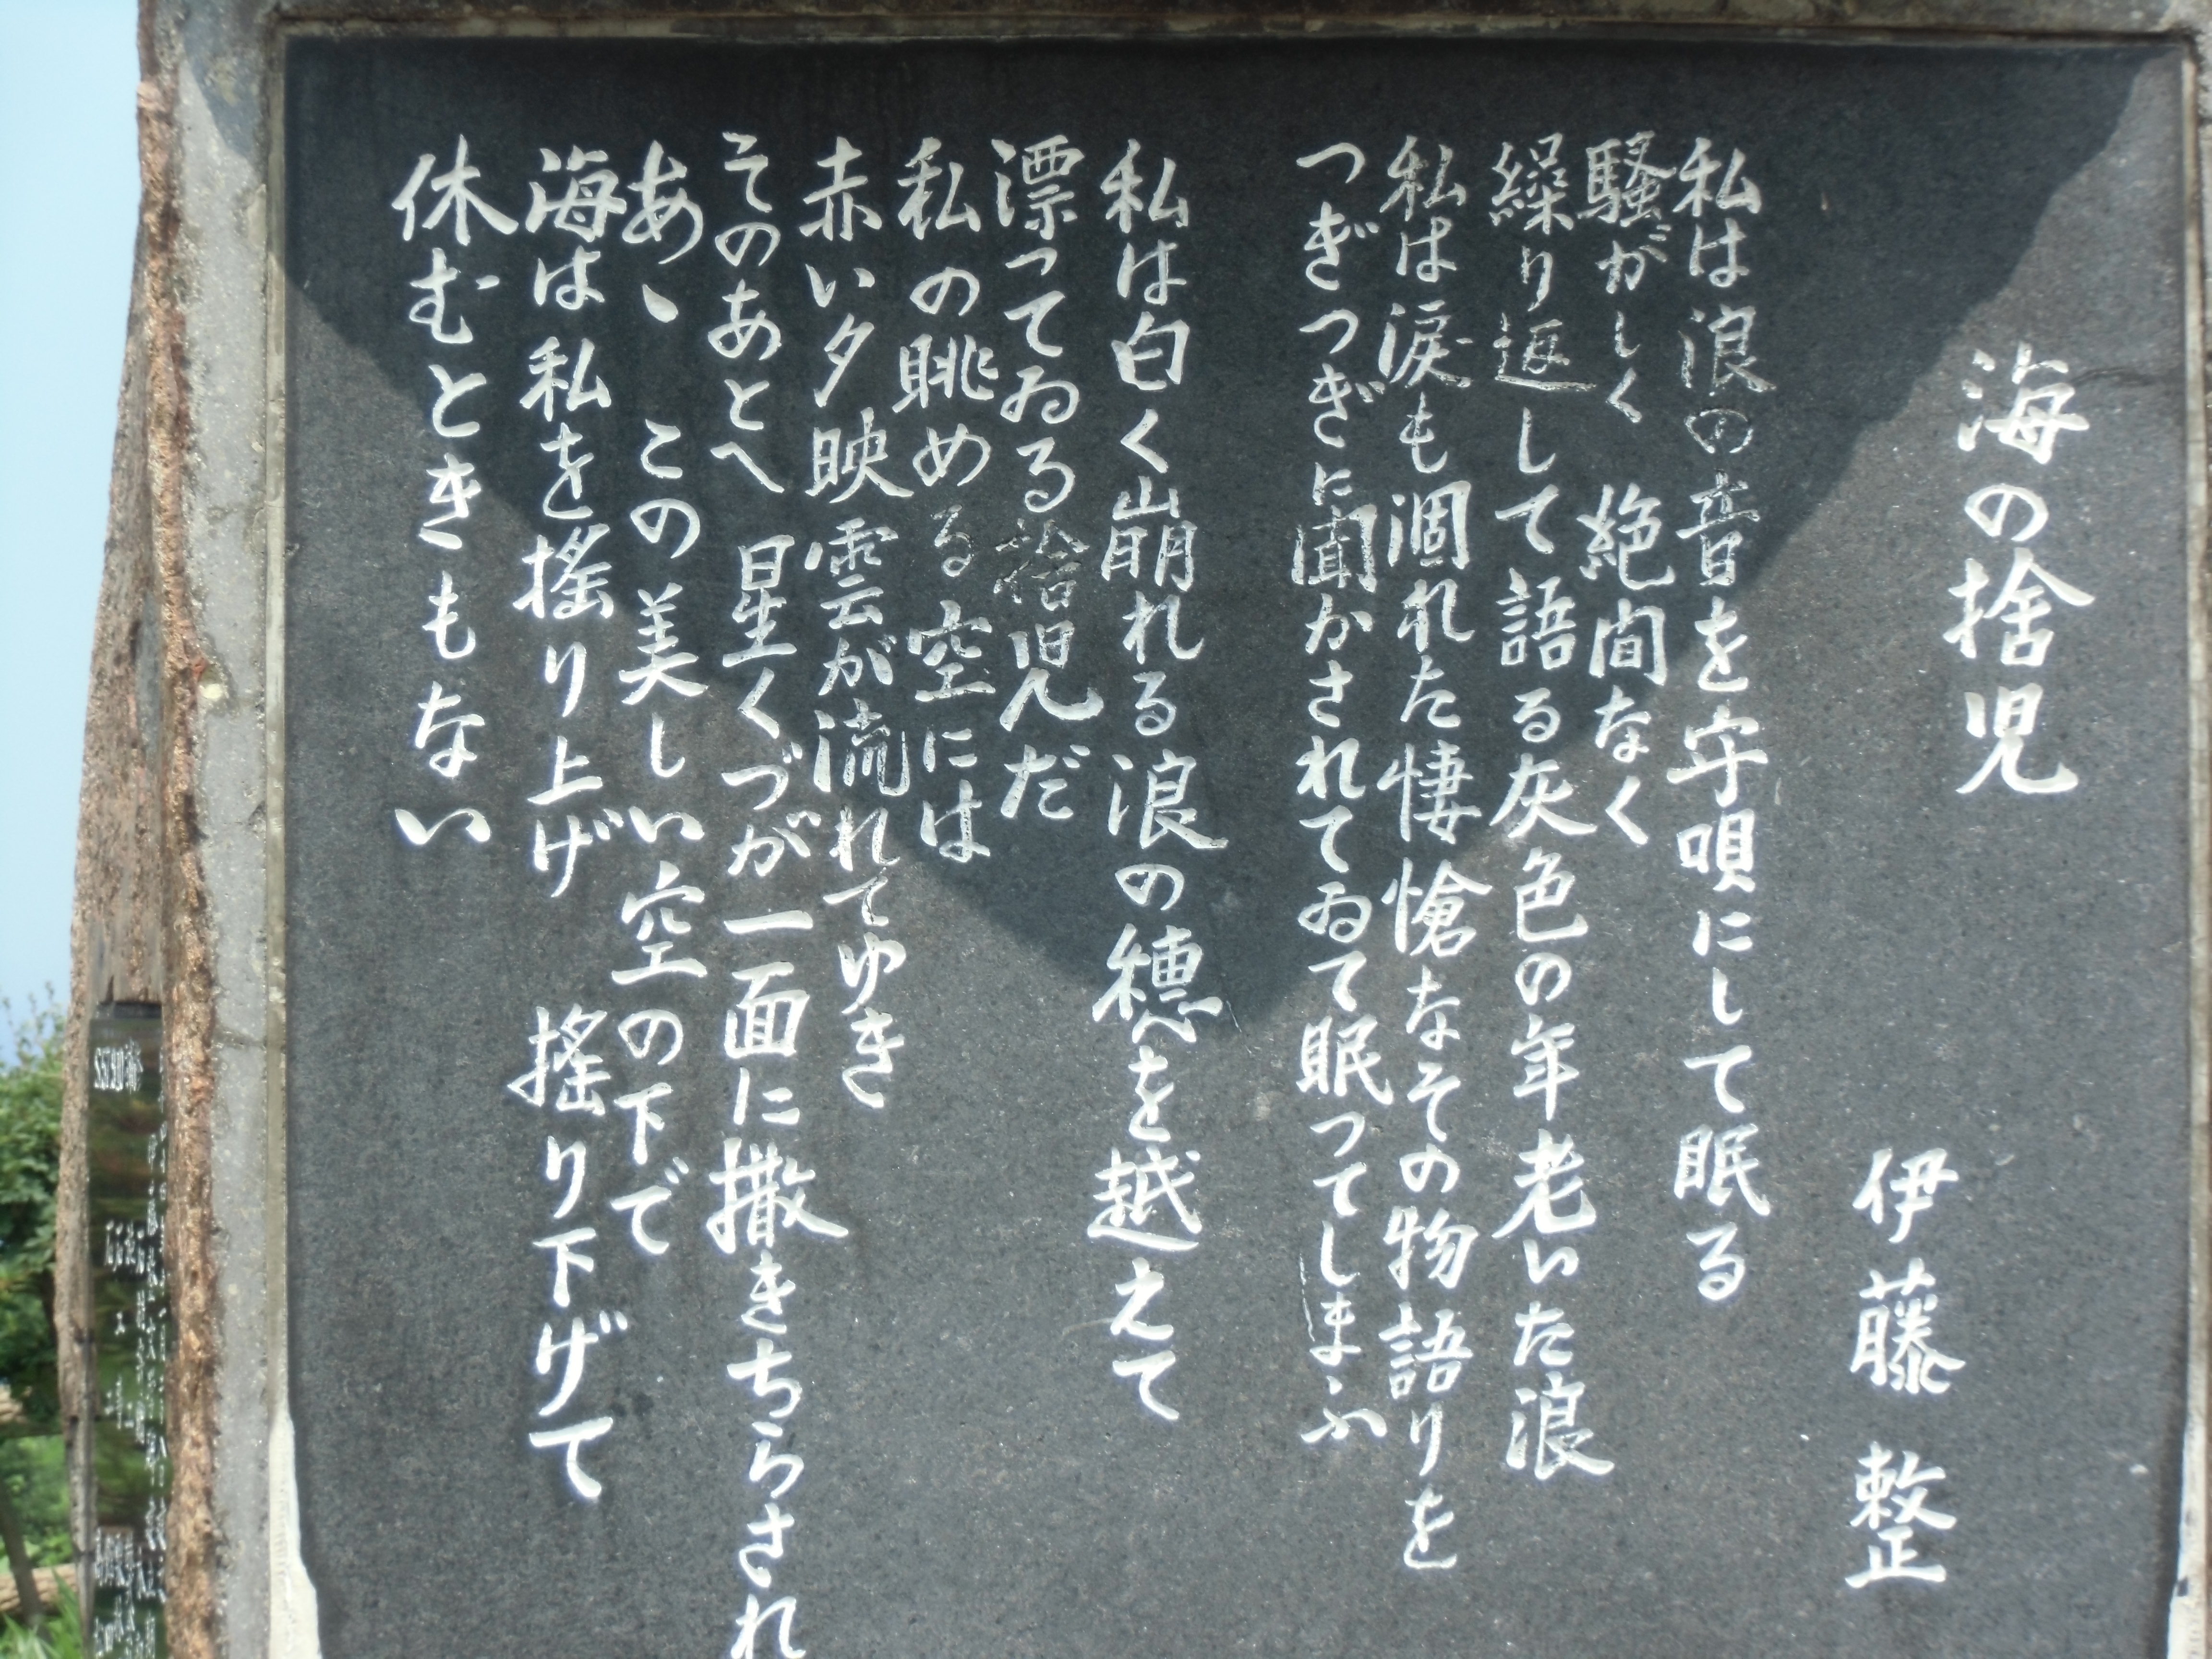 海の捨児
伊藤 整
私は浪の音を守唄にして眠る
騒がしく 絶間なく
繰り返して語る灰色の年老いた浪
私は涙も涸れた悽愴なその物語りを
つぎつぎに聞かされてゐて眠つてしまふ
私は白く崩れる浪の穂を越えて
漂つてゐる捨児だ
私の眺める空には
赤い夕映雲が流れてゆき
そのあとへ 星くづが一面に撒きちらされ
あゝ この美しい空の下で
海は私を搖り上げ 搖り下げて
休むときもない